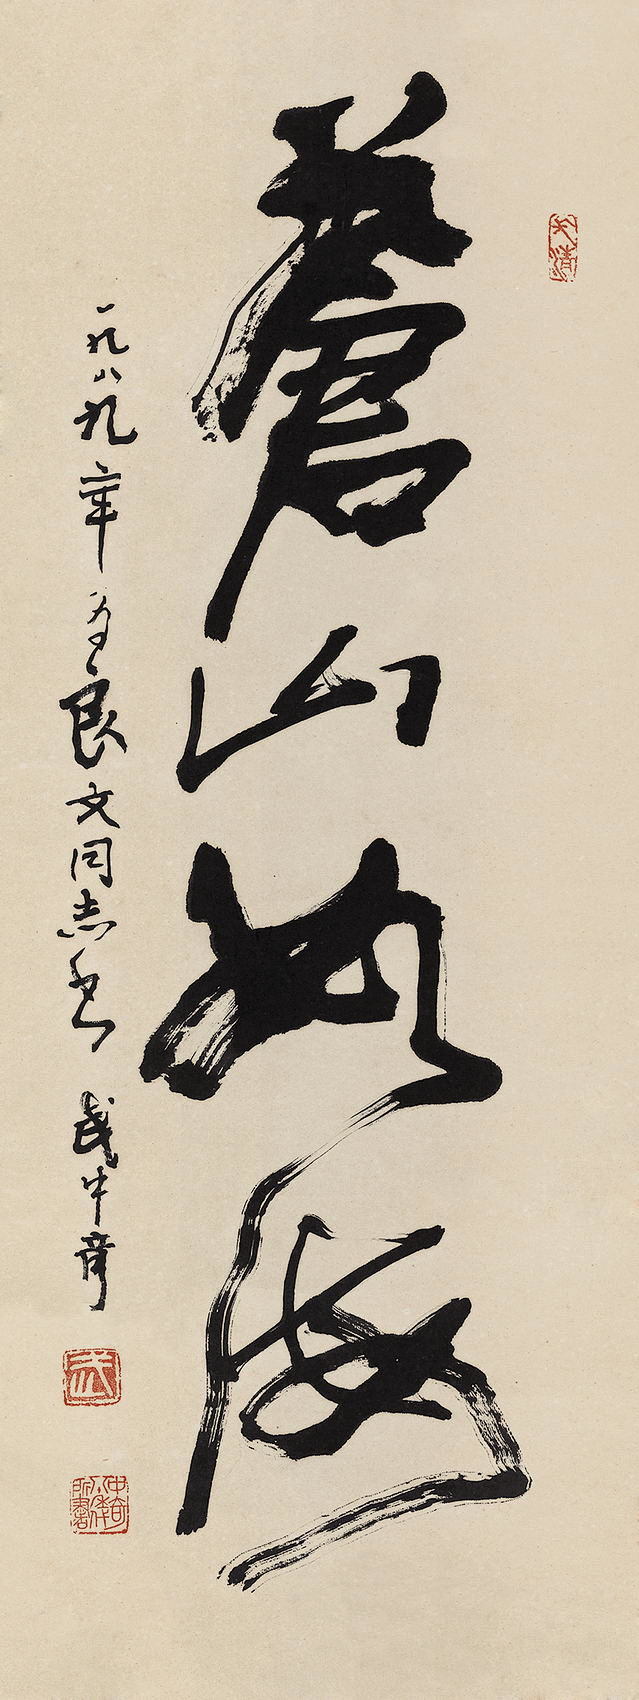 苍山如海
一九八九年为良文同志书 武中奇
武
中奇八十後所書